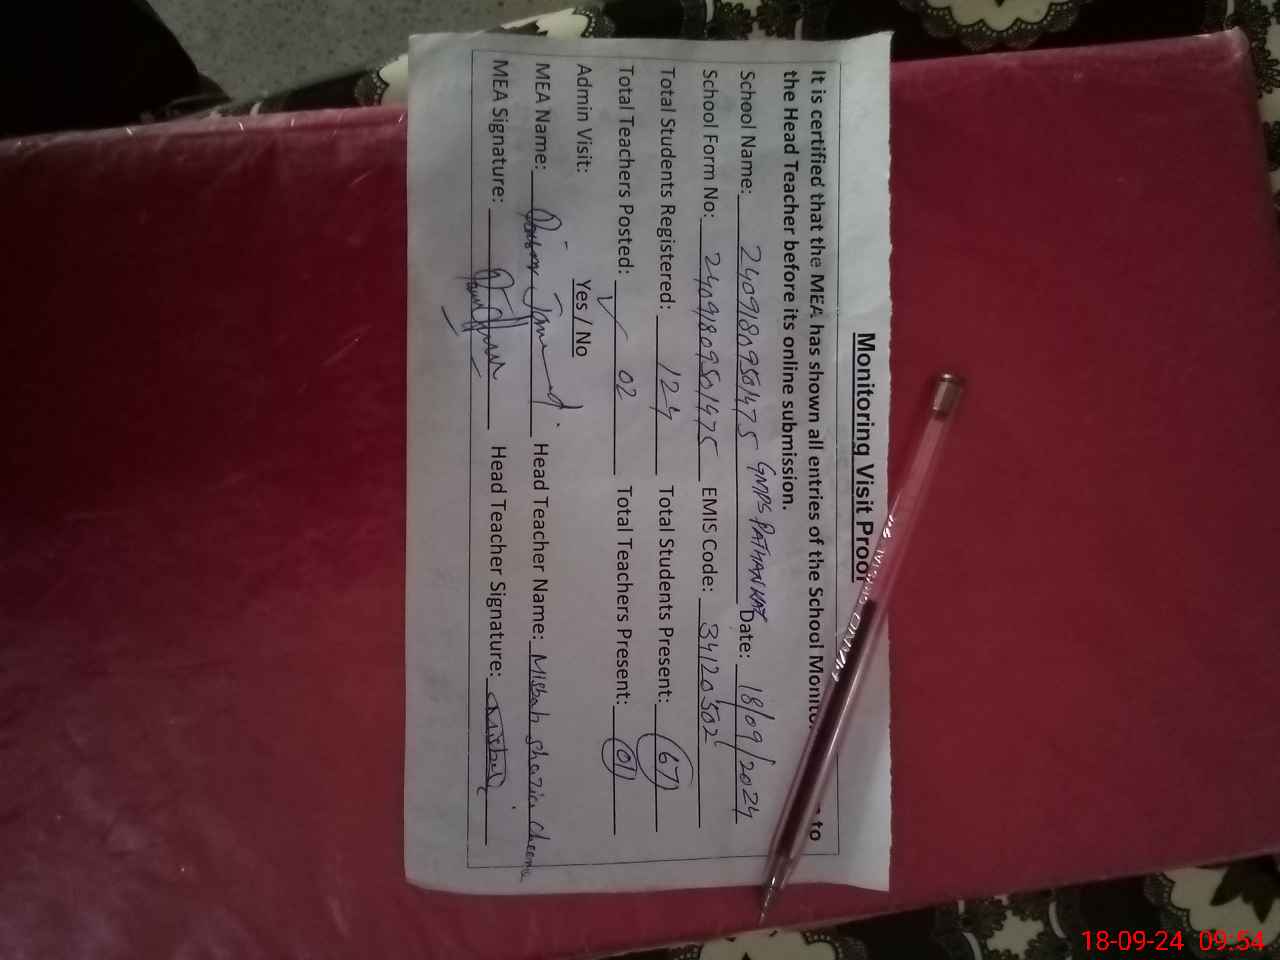 Monitoring Visit Proof
It is certified that the MEA has shown all entries of the School to
the Head Teacher before its online submission.
School Name: 24091809501475 GMPS PATHAN KOT Date: 18/09/2024
School Form No: 24091809501475 EMIS Code: 34120502
Total Students Registered: 124 Total Students Present: 67
Total Teachers Posted: 02 Total Teachers Present: 01
Admin Visit: Yes / No
MEA Name: Head Teacher Name: Misbah Shazia Cheema
MEA Signature: Head Teacher Signature: Misbah
18-09-24 09:54